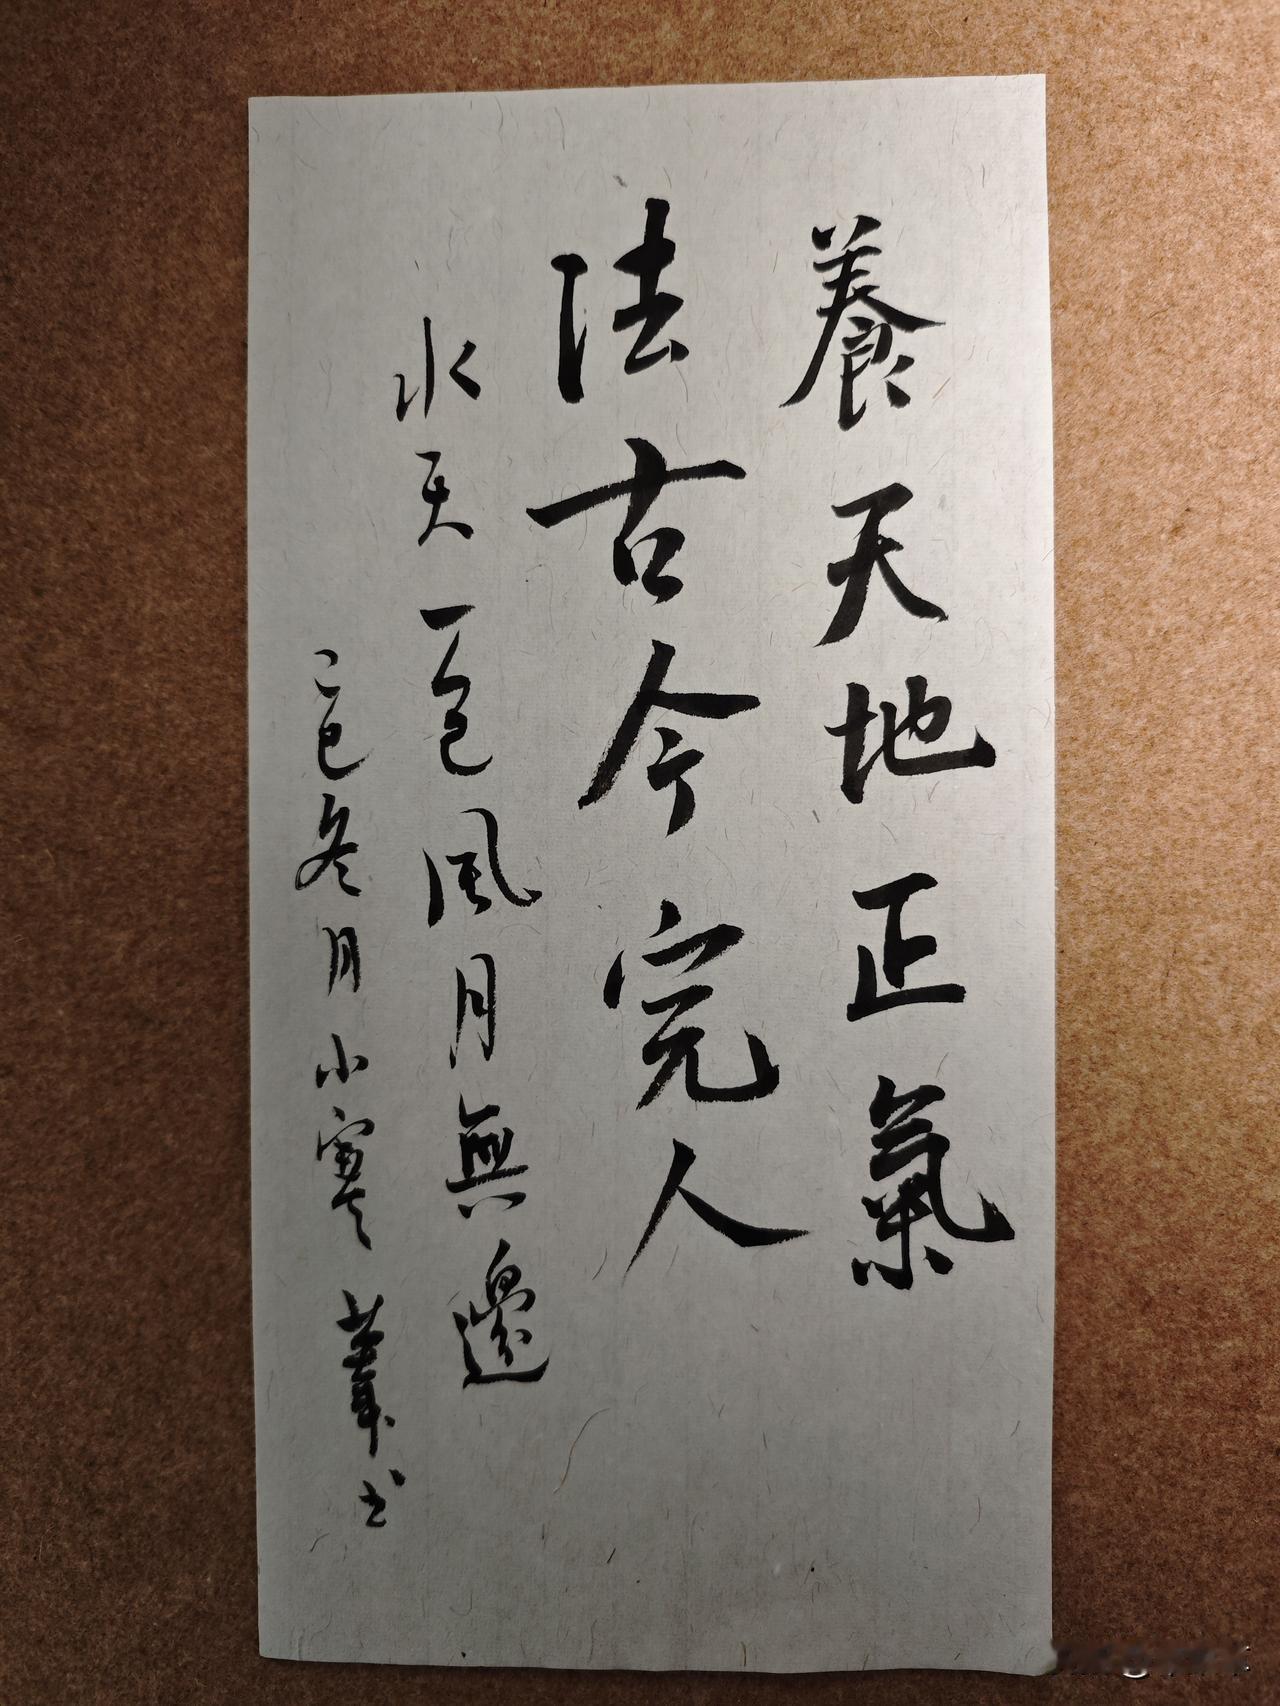 養天地正氣
法古今完人
水天一色風月無邊
乙巳冬月小寒葦书